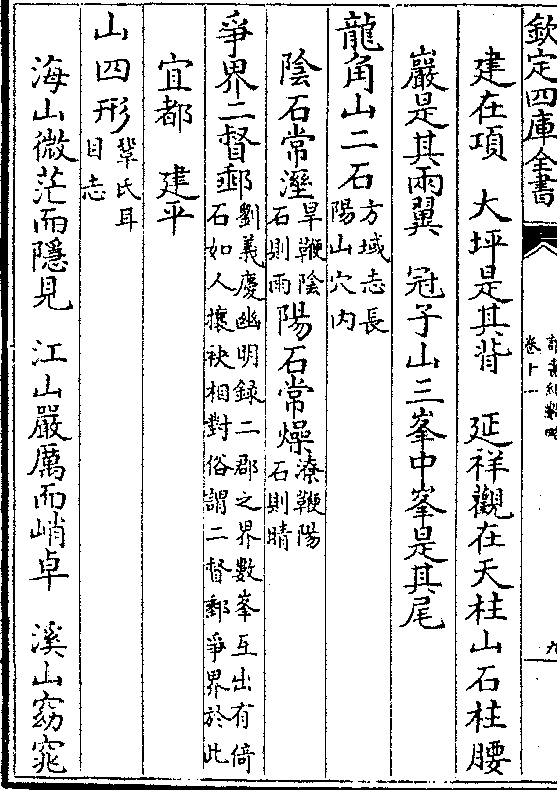 欽定四庫全書
卷十一
建在項　大坪是其背　延祥觀在天柱山石柱腰
巖是其兩翼　冠子山三峯中峯是其尾
龍角山二石方域志長陽山穴内
陰石常溼旱鞭陰石則雨陽石常燥潦鞭陽石則晴
爭界二督郵劉義慶幽明録二郡之界數峯互出有倚石如人攘袂相對俗謂二督郵爭界於此
宜都　建平
山四形鞏氏耳目志
海山微茫而隱見　江山嚴厲而峭卓　溪山窈窕